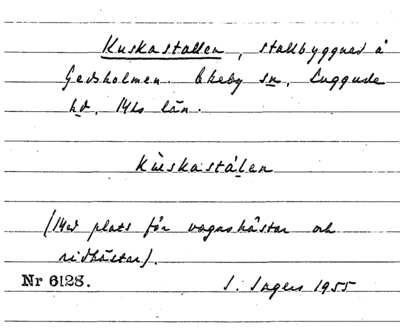 Kuskastallen, stallbyggnad å
Gedsholmen. Ekeby sn, Luggude
hd, Mlhs län.
Kùskastálen
(Med plats för vagnshästar och
ridhästar).
Nr 6128. S. Ingers 1955